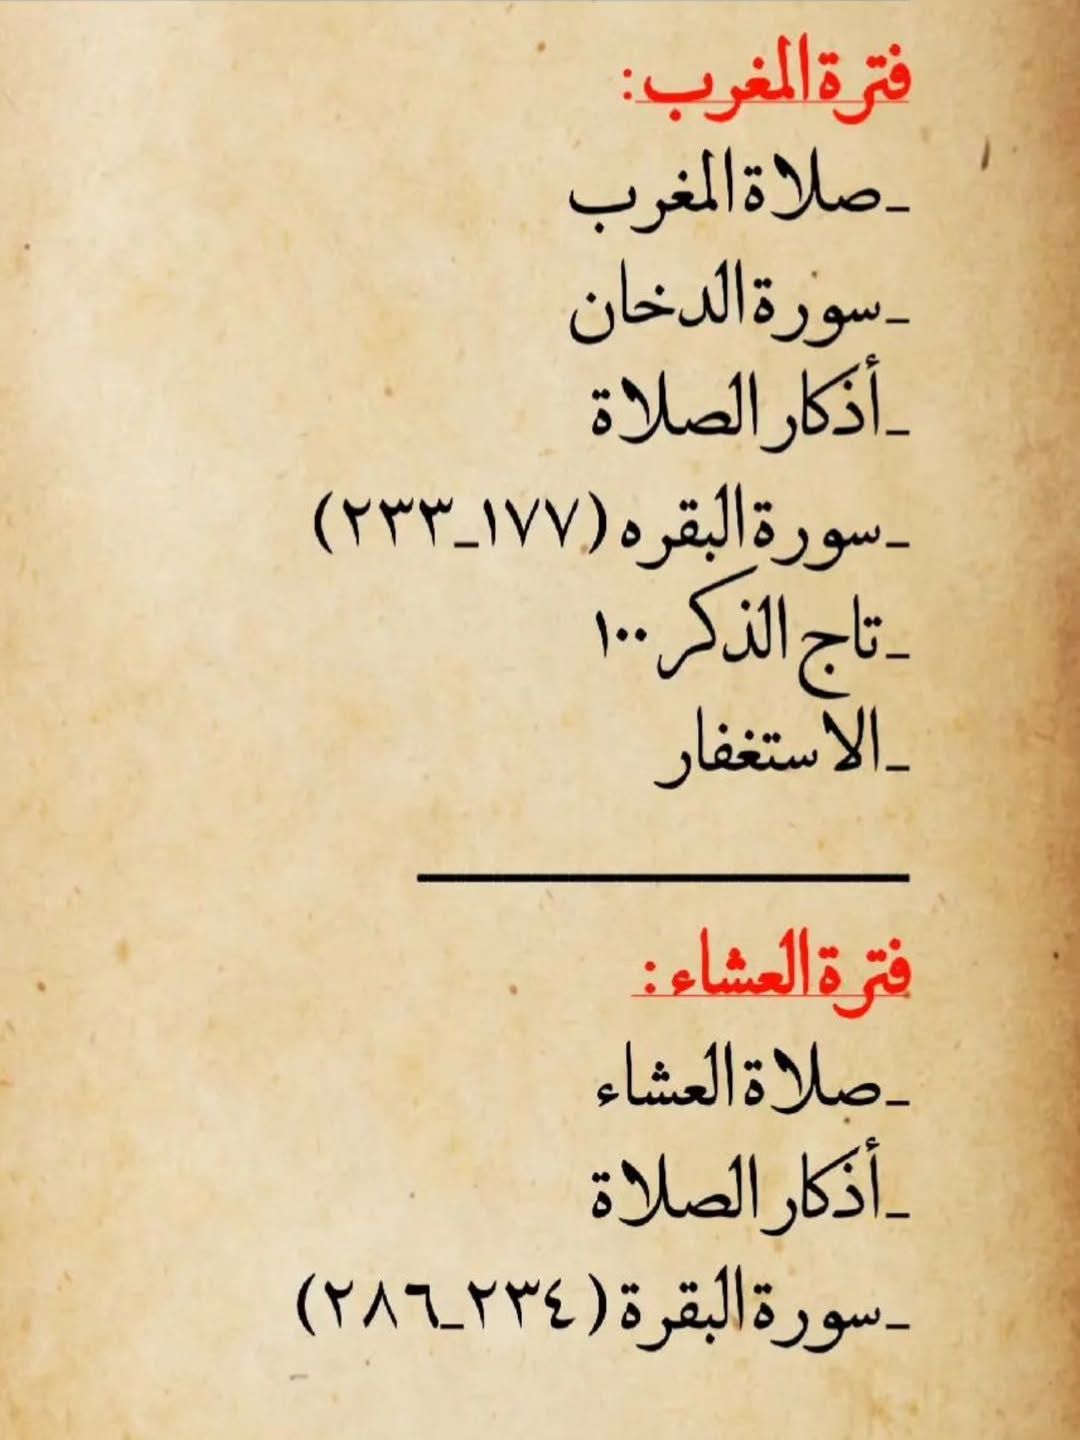 فترة المغرب:
_صلاة المغرب
_سورة الدخان
_أذكار الصلاة
_سورة البقره (١٧٧_٢٣٣)
_تاج الذكر ١٠٠
_الاستغفار
فترة العشاء:
_صلاة العشاء
_أذكار الصلاة
_سورة البقرة (٢٣٤_٢٨٦)